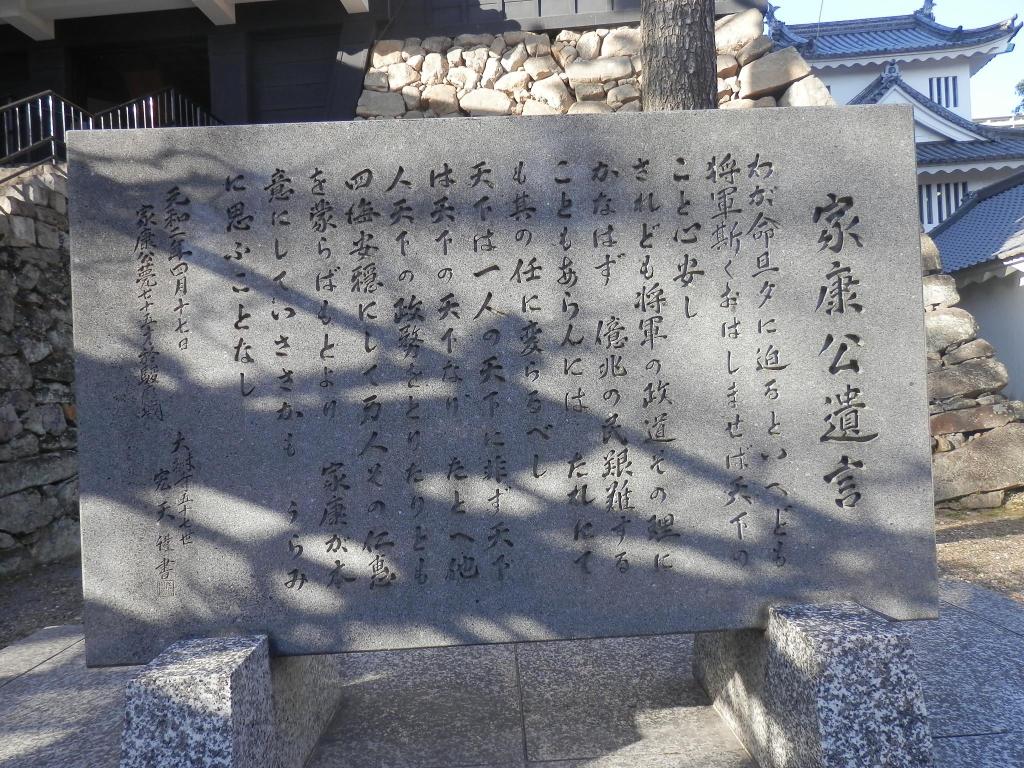 家康公遺言
わが命旦夕に迫るといへども
将軍斯くおはしませば天下の
こと心安し
されども将軍の政道その理に
かなはず 億兆の民艱難する
こともあらんには たれにて
も其の任に変らるべし
天下は一人の天下に非ず天下
は天下の天下なり たとへ他
人天下の政務をとりたりとも
四海安穏にして万人その仁恵
を蒙らばもとより 家康が本
意にしていささかも うらみ
に思ふことなし
元和二年四月十七日
家康公薨七十五才於駿府城
大樹寺五十七世
宏天俊書